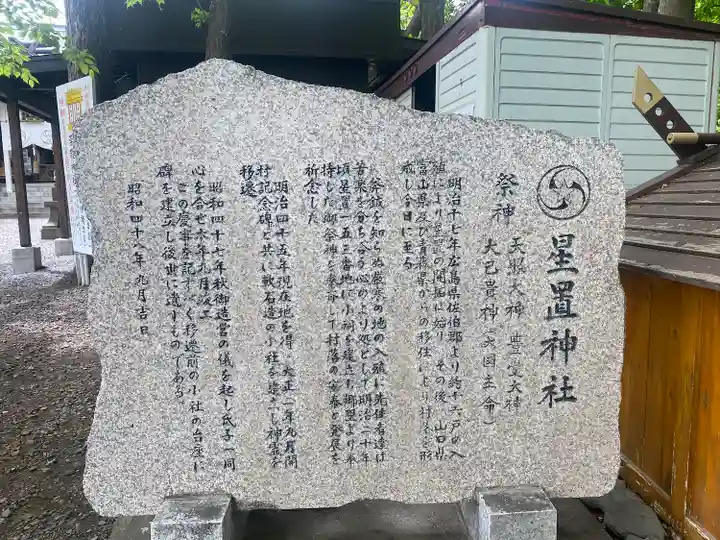 星置神社
祭神 天照大神 豊受大神
大己貴神(大国主命)
明治十七年広島県佐伯郡より約十六戸の入
殖により星置の開拓に始り その後、山口県
富山県及び青森県からの移住により村落を形
成し今日に至る
発鉞を知らぬ厳寒の地の入殖に先住者達は
苦楽を分ち合う心のより処として明治二十年
頃星置一五三番地に小祠を建立し郷里より奉
持した御祭神を奉斎して村落の安泰と発展を
祈念した
明治四十五年現在地を得 大正 年九月開
村記念碑と共に軟石造の小社を建立し神霊を
移遷
昭和四十七年秋御造営の儀を起し氏子一同
心を合せ本年九月竣工
この慶事を記すべく移遷前の小社の台座に
碑を建立し後世に遺すものである
昭和四十八年九月吉日